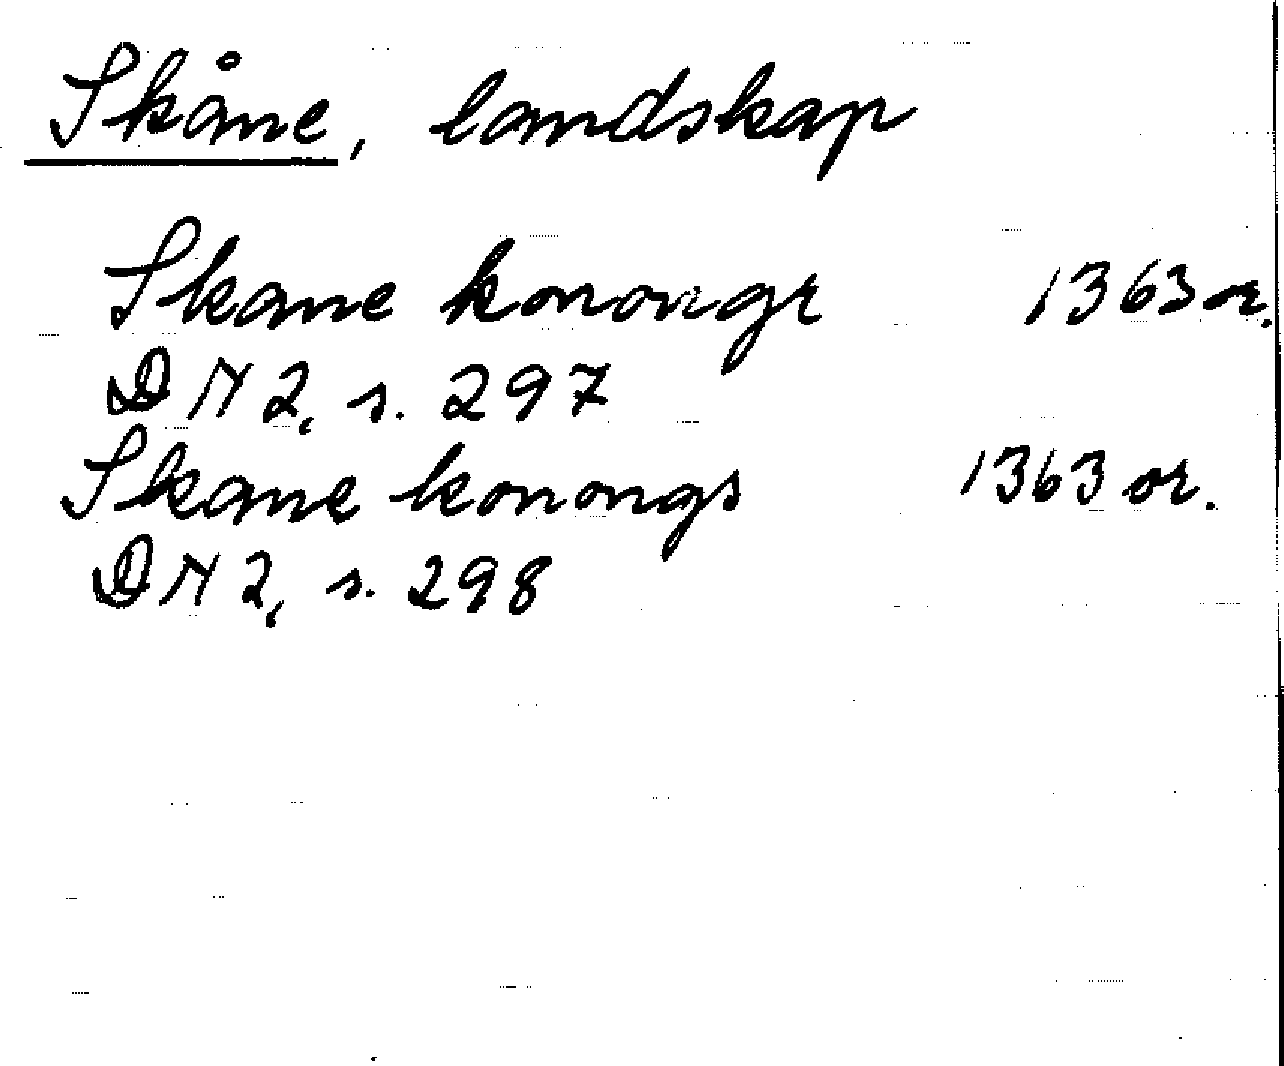 Skåne, landskap
Skane konongr 1363 or.
DN 2, s. 297
Skane konongs 1363 or.
DN 2, s. 298